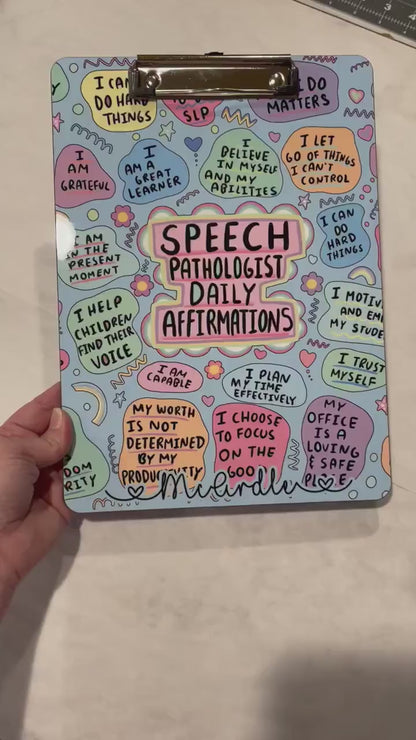 I CAN
DO HARD
THINGS
SLP
I DO
MATTERS
I
AM
GRATEFUL
I
AM A
GREAT
LEARNER
I
BELIEVE
IN MYSELF
AND MY
ABILITIES
I LET
GO OF THINGS
I CAN'T
CONTROL
I AM
IN THE
PRESENT
MOMENT
SPEECH
PATHOLOGIST
DAILY
AFFIRMATIONS
I CAN
DO
HARD
THINGS
I HELP
CHILDREN
FIND THEIR
VOICE
I MOTIV
AND EM
MY STUDE
I TRUST
MYSELF
I AM
CAPABLE
I PLAN
MY TIME
EFFECTIVELY
MY WORTH
IS NOT
DETERMINED
BY MY
PRODUCTIVITY
I CHOOSE
TO FOCUS
ON THE
GOO
MY
OFFICE
IS A
LOVING
& SAFE
PLACE
DOM
RITY
McArdle